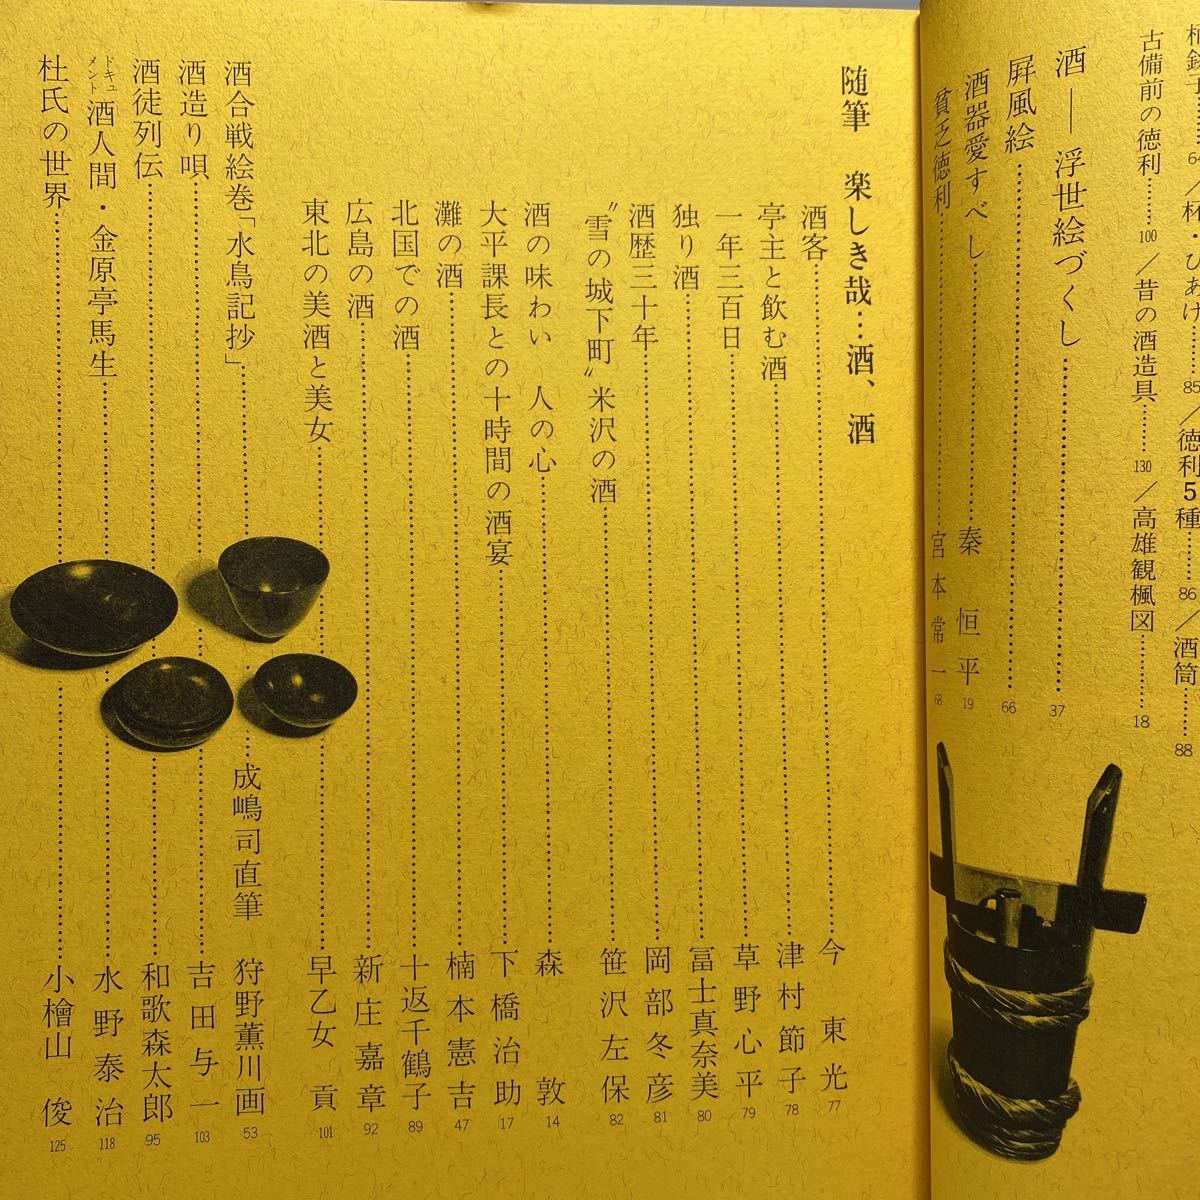 64／杯・ひあげ……85／徳利5種……86／酒筒……88
古備前の徳利……100／昔の酒造具……130／高雄観楓図……18
酒―浮世絵づくし……37
屛風絵……66
酒器愛すべし……秦恒平 19
貧乏徳利……宮本常一 68
随筆 楽しき哉…酒、酒
酒客……今東光 77
亭主と飲む酒……津村節子 78
一年三百日……草野心平 79
独り酒……冨士真奈美 80
酒歴三十年……岡部冬彦 81
〝雪の城下町〟米沢の酒……笹沢左保 82
酒の味わい 人の心……森敦 14
大平課長との十時間の酒宴……下橋治助 17
灘の酒……楠本憲吉 47
北国での酒……十返千鶴子 89
広島の酒……新庄嘉章 92
東北の美酒と美女……早乙女貢 101
酒合戦絵巻「水鳥記抄」……成嶋司直筆 狩野薫川画 53
酒造り唄……吉田与一 103
酒徒列伝……和歌森太郎 95
ドキュメント 酒人間・金原亭馬生……水野泰治 118
杜氏の世界……小檜山俊 125